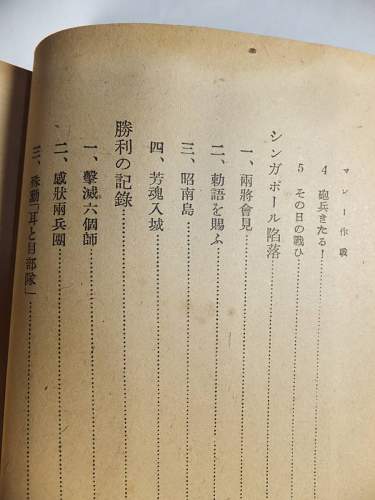 マレー作戦
4 砲兵きたる！
5 その日の戰ひ
シンガポール陷落
一、兩將會見
二、勅語を賜ふ
三、昭南島
四、芳魂入城
勝利の記錄
一、擊滅六個師
二、感狀兩兵團
三、殊勳「耳と目部隊」